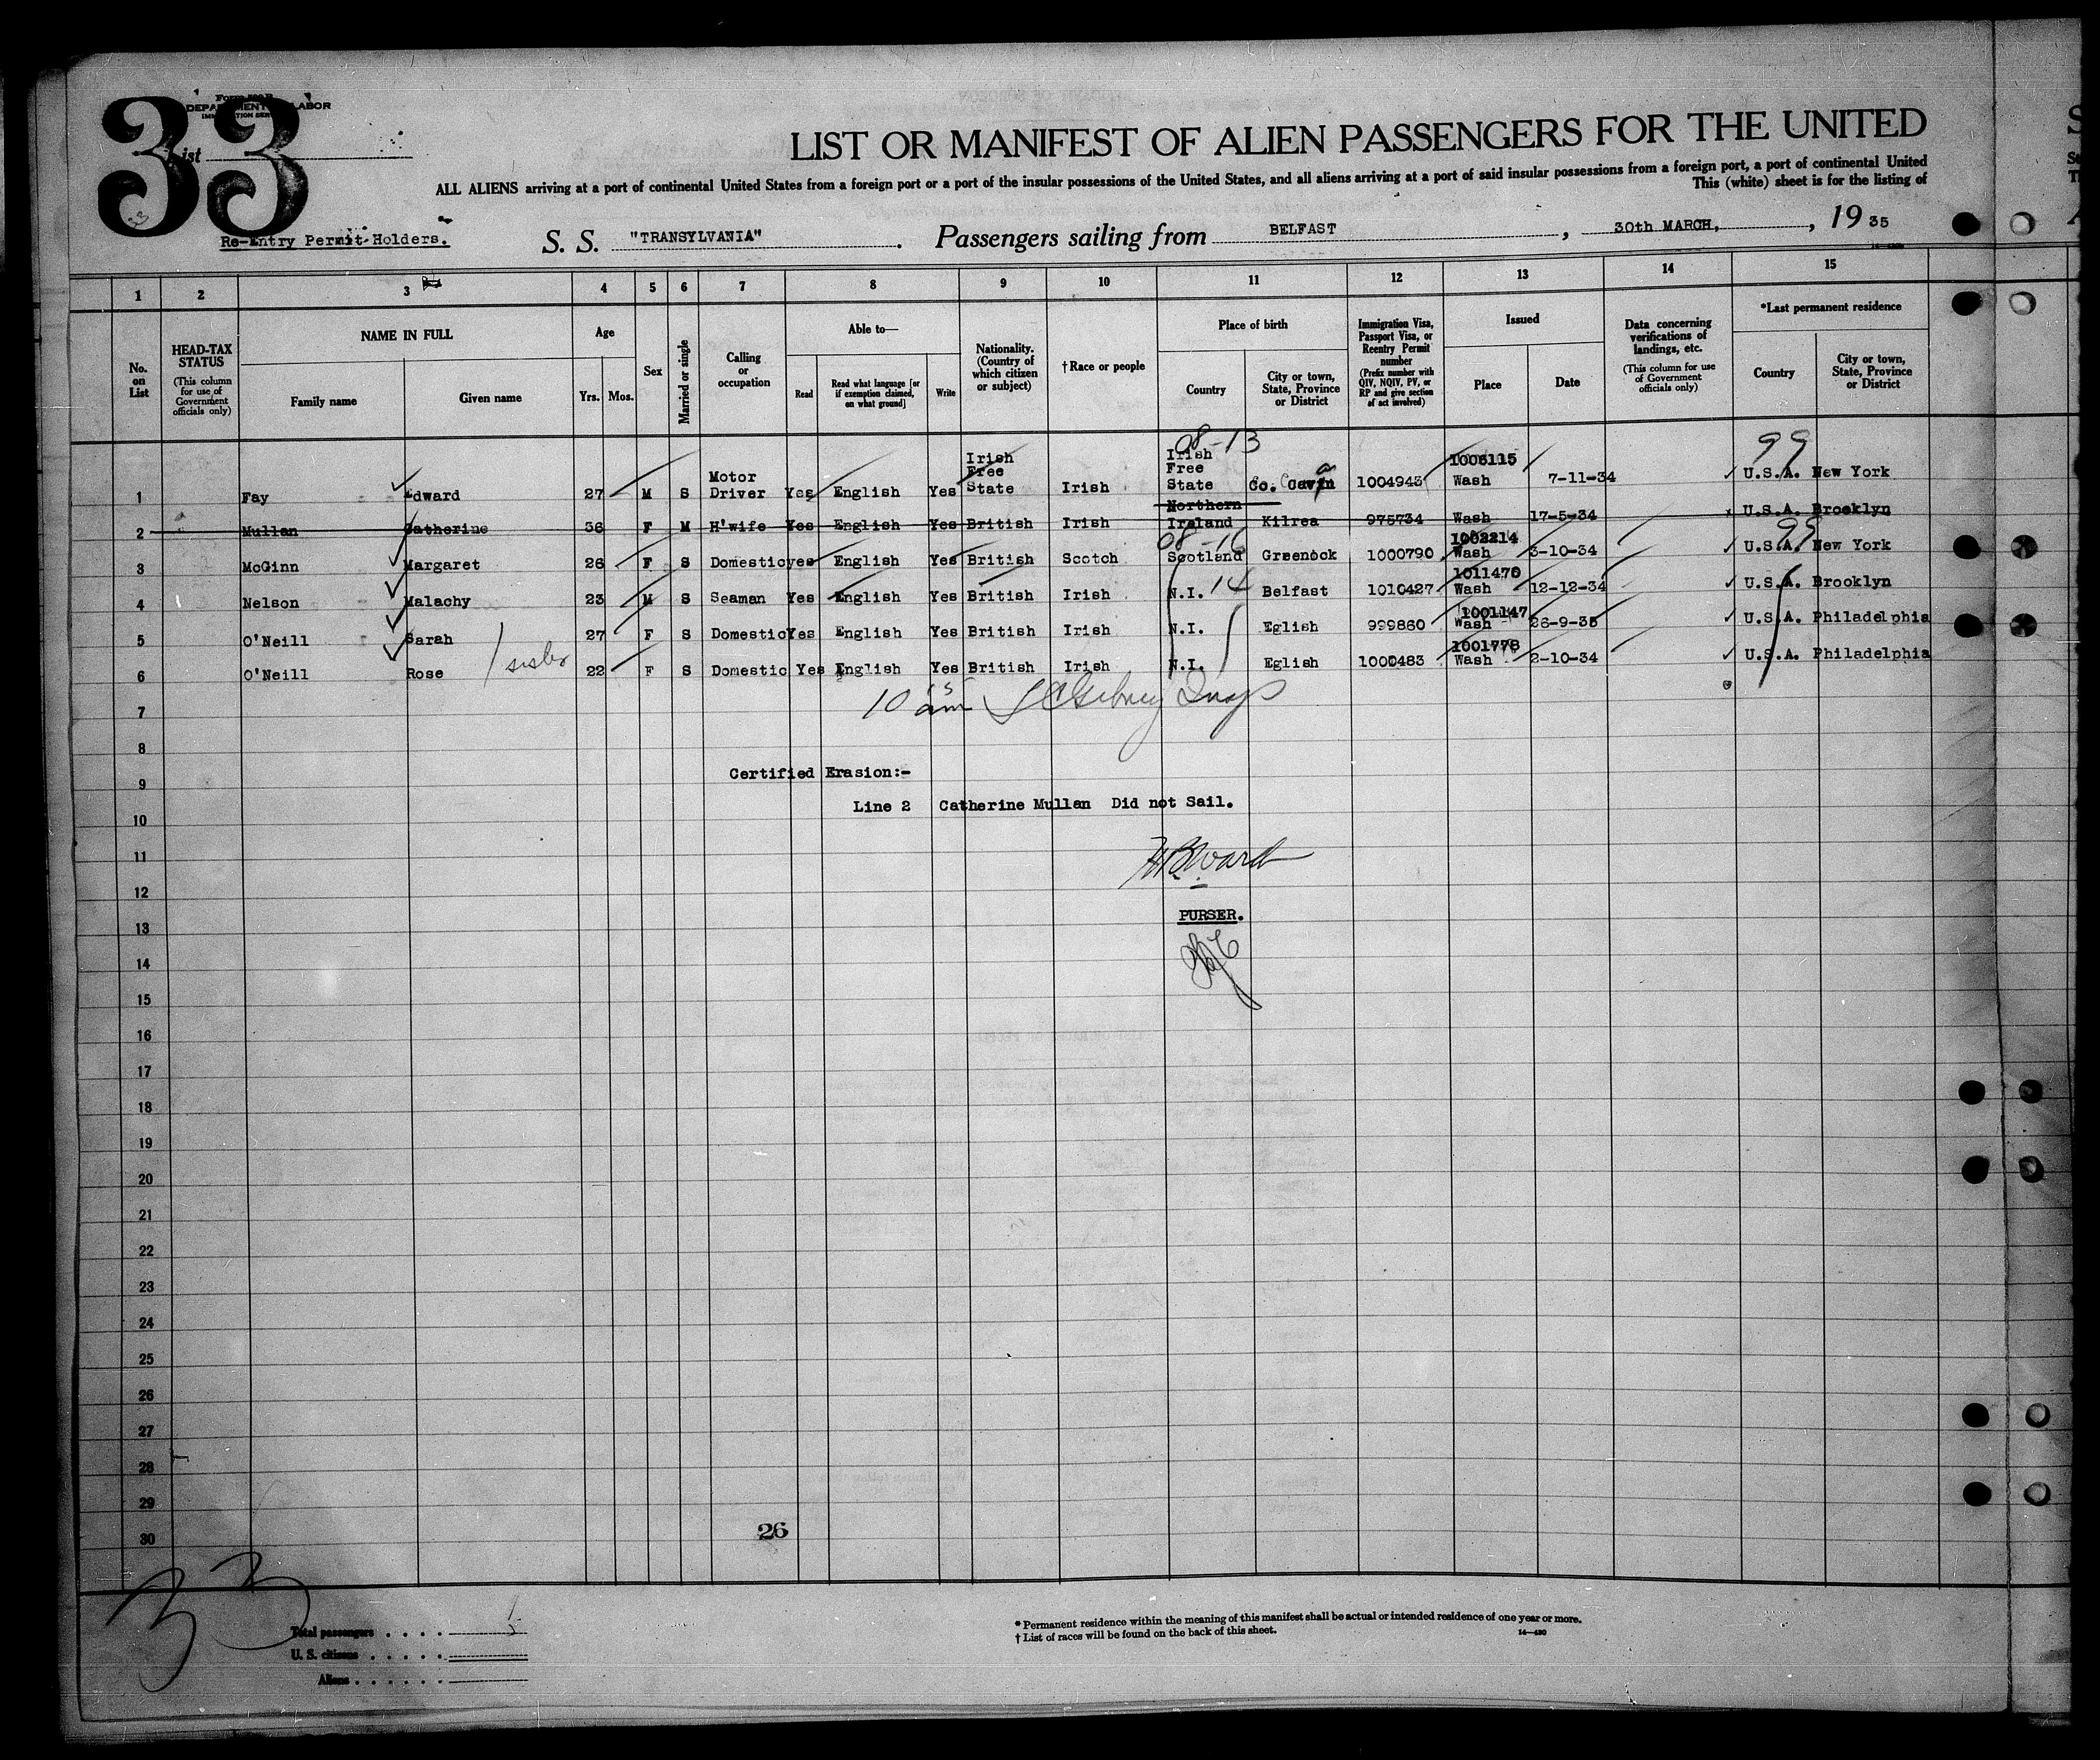 33
Form 500 B
DEPARTMENT OF LABOR
List
LIST OR MANIFEST OF ALIEN PASSENGERS FOR THE UNITED
ALL ALIENS arriving at a port of continental United States from a foreign port or a port of the insular possessions of the United States, and all aliens arriving at a port of said insular possessions from a foreign port, a port of continental United
This (white) sheet is for the listing of
Re-Entry Permit Holders. S. S. "TRANSYLVANIA" . Passengers sailing from BELFAST , 30th MARCH, , 19 35
1 2 3 4 5 6 7 8 9 10 11 12 13 14 15
No. on List
HEAD-TAX STATUS (This column for use of Government officials only)
NAME IN FULL
Family name Given name
Age
Yrs. Mos.
Sex
Married or single
Calling or occupation
Able to—
Read Read what language [or if exemption claimed, on what ground] Write
Nationality. (Country of which citizen or subject)
†Race or people
Place of birth
Country City or town, State, Province or District
Immigration Visa, Passport Visa, or Reentry Permit number (Prefix number with QIV, NQIV, PV, or RP and give section of act involved)
Issued
Place Date
Data concerning verifications of landings, etc. (This column for use of Government officials only)
*Last permanent residence
Country City or town, State, Province or District
08-13 99
1 Fay Edward 27 M S Motor Driver Yes English Yes Irish Free State Irish Irish Free State Co. Cavan 1004943 1006115 Wash 7-11-34 U.S.A. New York
2 Mullan Catherine 36 F M H'wife Yes English Yes British Irish Northern Ireland Kilrea 975734 Wash 17-5-34 U.S.A. Brooklyn
08-16 99
3 McGinn Margaret 26 F S Domestic yes English Yes British Scotch Scotland Greenock 1000790 1002214 Wash 3-10-34 U.S.A. New York
4 Nelson Malachy 23 M S Seaman Yes English Yes British Irish N.I. 14 Belfast 1010427 1011470 Wash 12-12-34 U.S.A. Brooklyn
5 O'Neill Sarah 27 F S Domestic Yes English Yes British Irish N.I. Eglish 999860 1001147 Wash 26-9-35 U.S.A. Philadelphia
6 O'Neill Rose sister 22 F S Domestic Yes English Yes British Irish N.I. Eglish 1000483 1001778 Wash 2-10-34 U.S.A. Philadelphia
7
8
9
10
11
12
13
14
15
16
17
18
19
20
21
22
23
24
25
26
27
28
29
30
Certified Erasion:-
Line 2 Catherine Mullan Did not Sail.
PURSER.
26
33
Total passengers
U. S. citizens
Aliens
*Permanent residence within the meaning of this manifest shall be actual or intended residence of one year or more.
†List of races will be found on the back of this sheet.
14—430